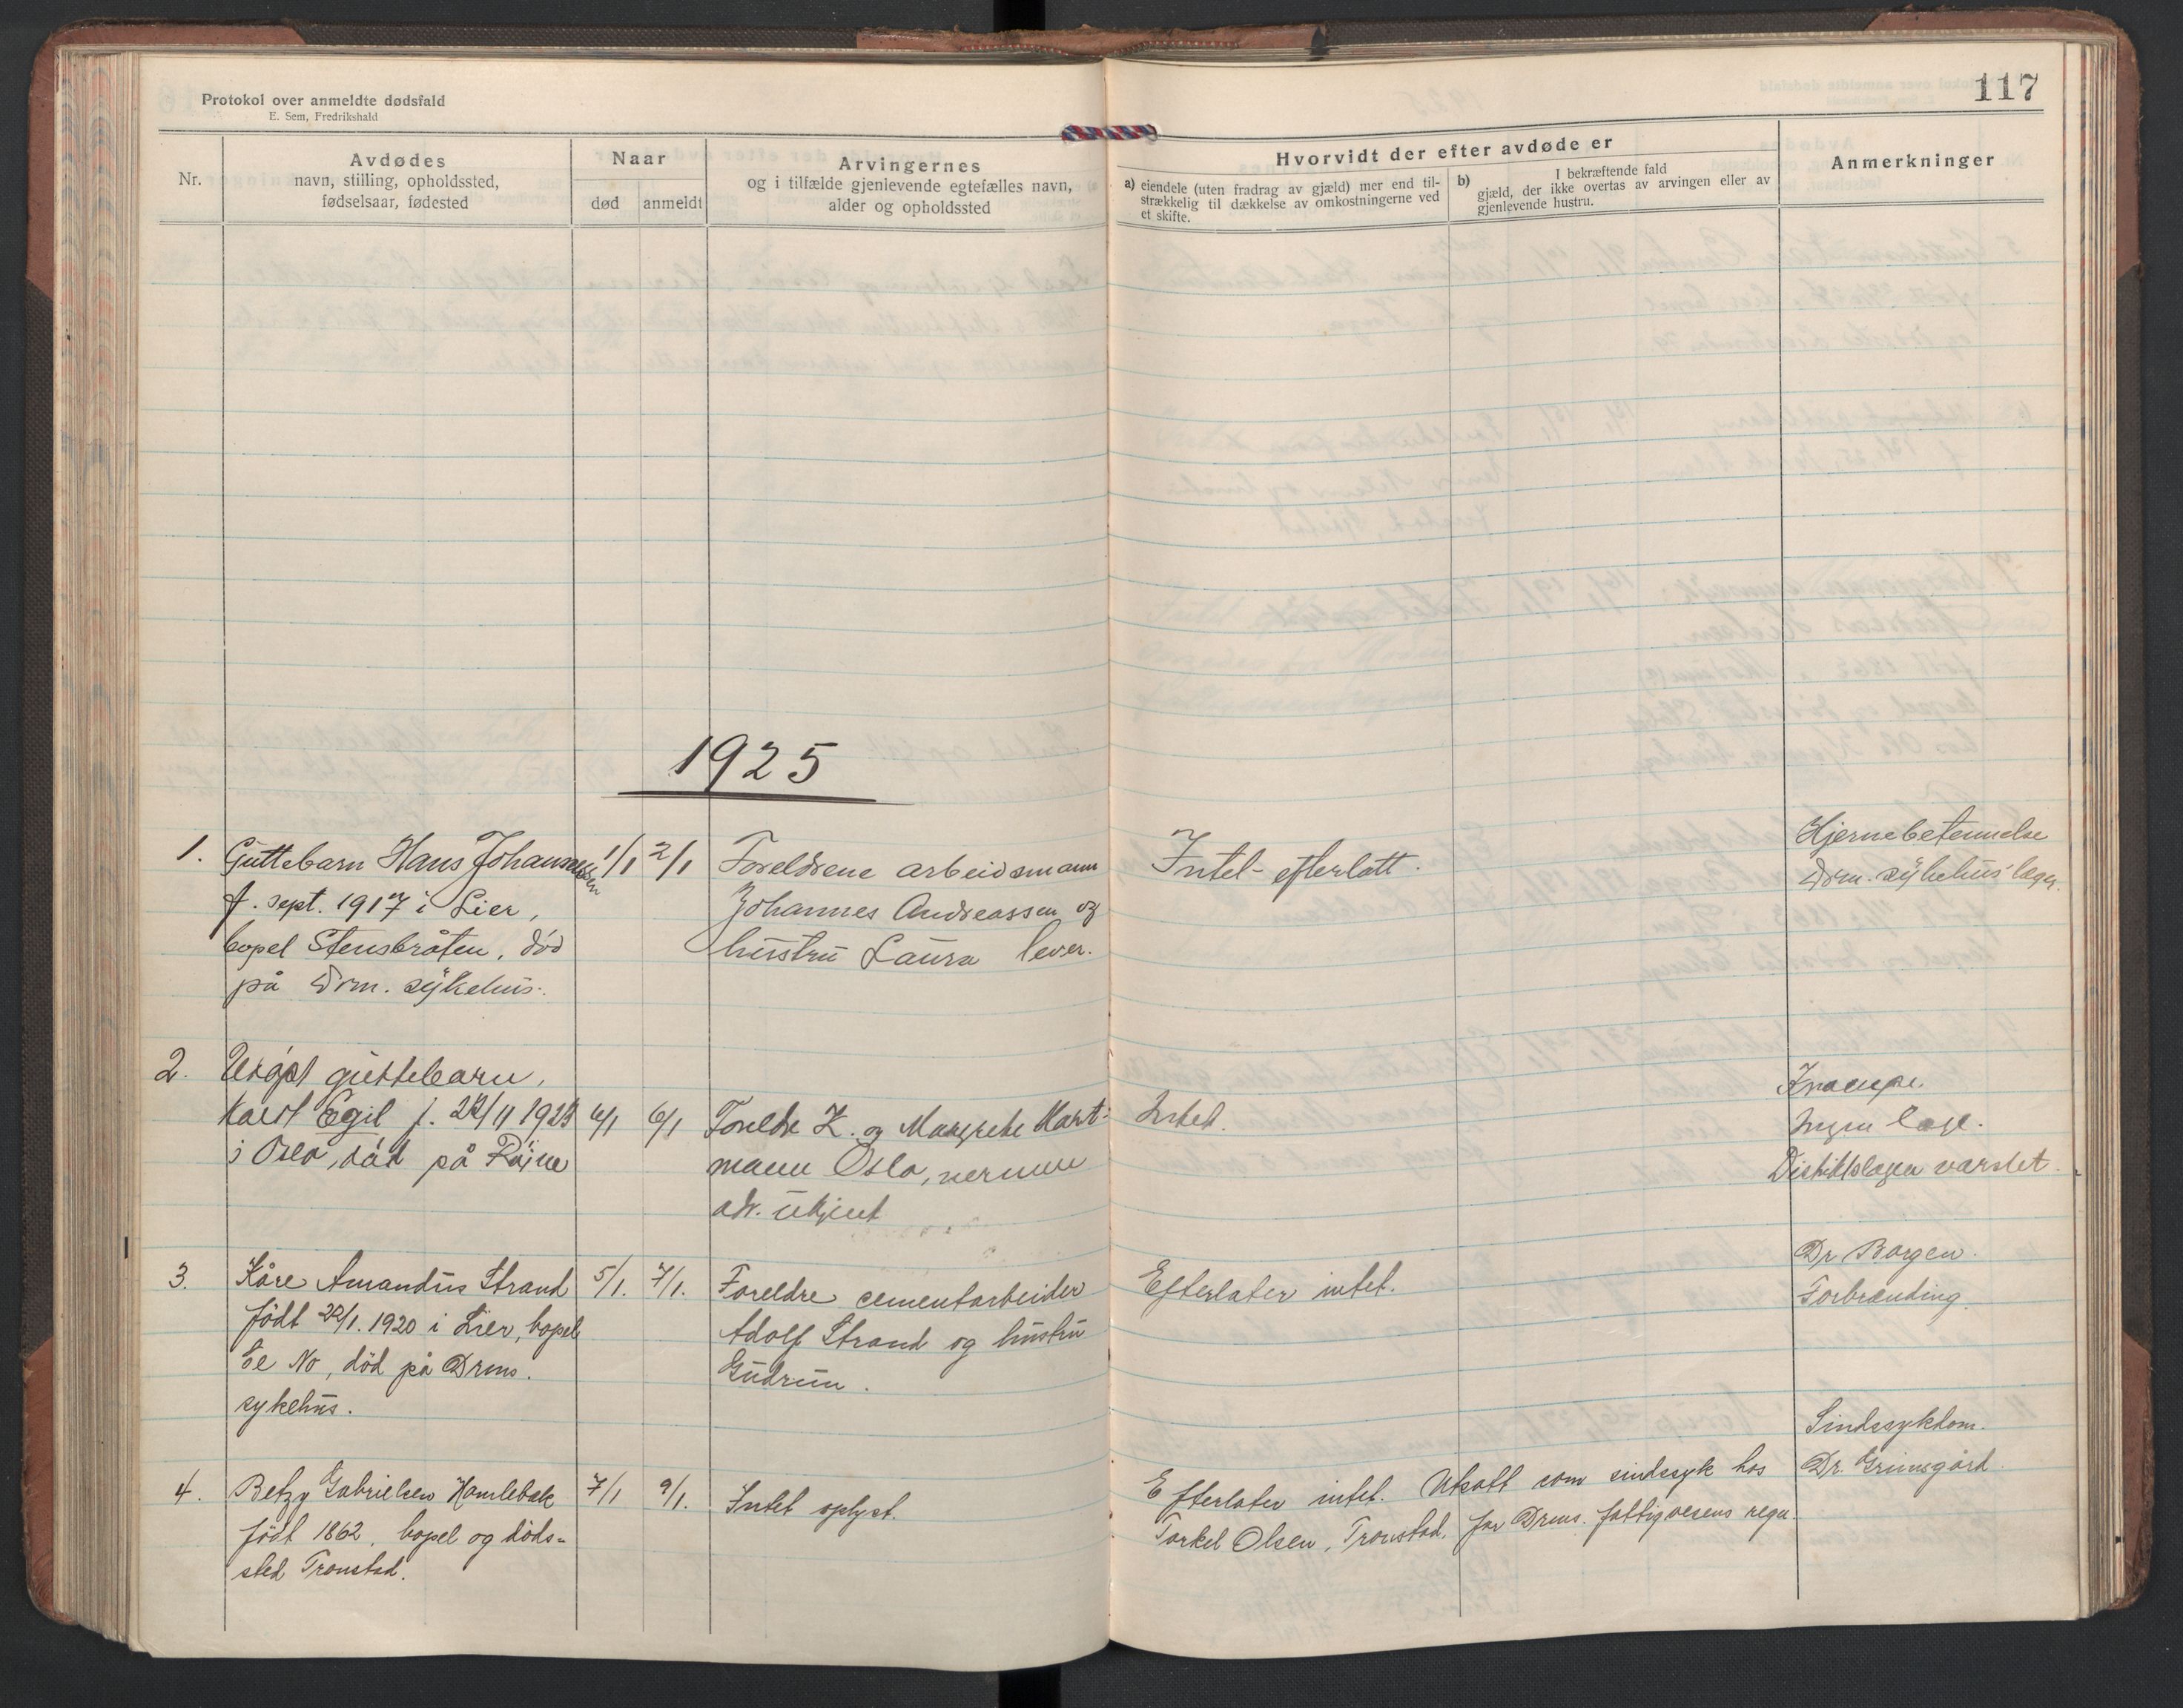 117
Protokol over anmeldte dødsfald
E. Sem, Fredrikshald
Nr.
Avdødes
navn, stilling, opholdssted,
fødselsaar, fødested
Naar
død
anmeldt
Arvingernes
og i tilfælde gjenlevende egtefælles navn,
alder og opholdssted
Hvorvidt der efter avdøde er
a) eiendele (uten fradrag av gjæld) mer end til-
strækkelig til dækkelse av omkostningerne ved
et skifte.
b) I bekræftende fald
gjæld, der ikke overtas av arvingen eller av
gjenlevende hustru.
Anmerkninger
1925
1. Guttebarn Hans Johannessen
f. sept. 1917 i Lier,
bopel Stensbråten, død
på Drm. sykehus.
1/1 2/1
Foreldrene arbeidsmann
Johannes Andreassen og
hustru Laura lever.
Intet efterlatt.
Hjernebetennelse
Drm. sykehus læger.
2. Udøpt guttebarn,
kaldt Egil f. 22/11 1924
i Oslo, død på
6/1 6/1
Foreldre K. og Margrete Hart-
mann Oslo, nermere
adr. ukjent
Intet.
Krampe.
Ingen læge.
Distriktslægen varslet.
3. Kåre Amandus Strand
født 22/1. 1920 i Lier, bopel
No, død på Drms.
sykehus.
5/1. 7/1.
Foreldre cementarbeider
Adolf Strand og hustru
Gudrun.
Efterlater intet.
Dr Borgen.
Forbrænding.
4. Betzy Gabrielsen Hamlebak
født 1862, bopel og døds-
sted Tronstad.
7/1 9/1.
Intet oplyst.
Efterlater intet. Utsatt som sindssyk hos
Torkel Olsen, Tronstad, for Drms. fattigvesens regn.
Sindssykdom.
Dr. Grimsgård